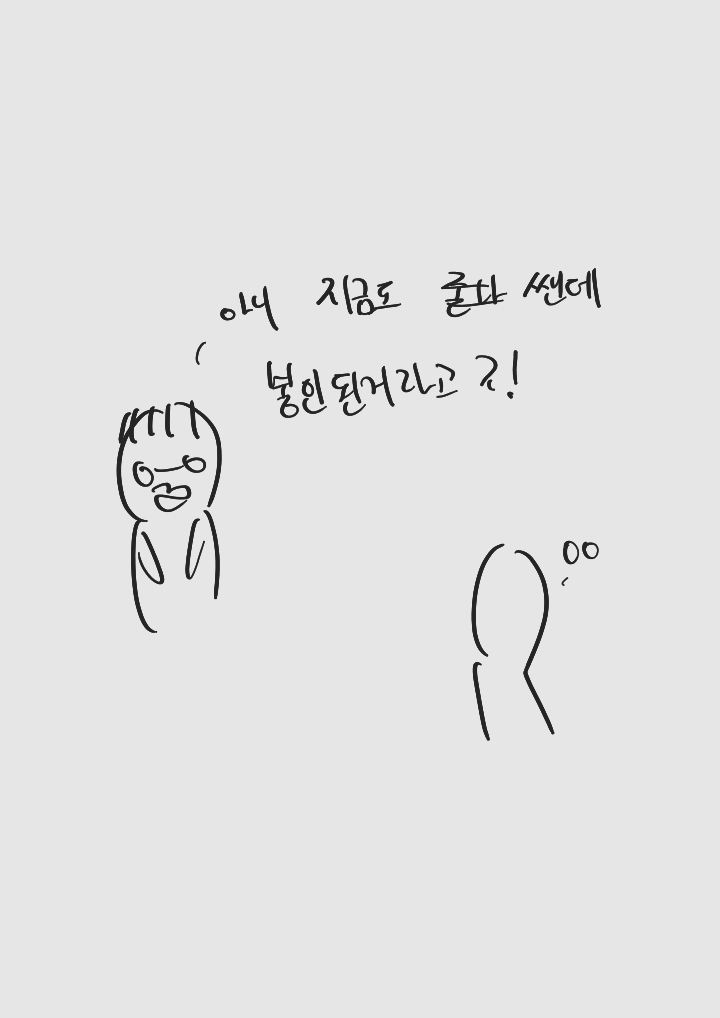 아니 지금도 졸라 쎈데
봉인된거라고 ?!
ㅇㅇ